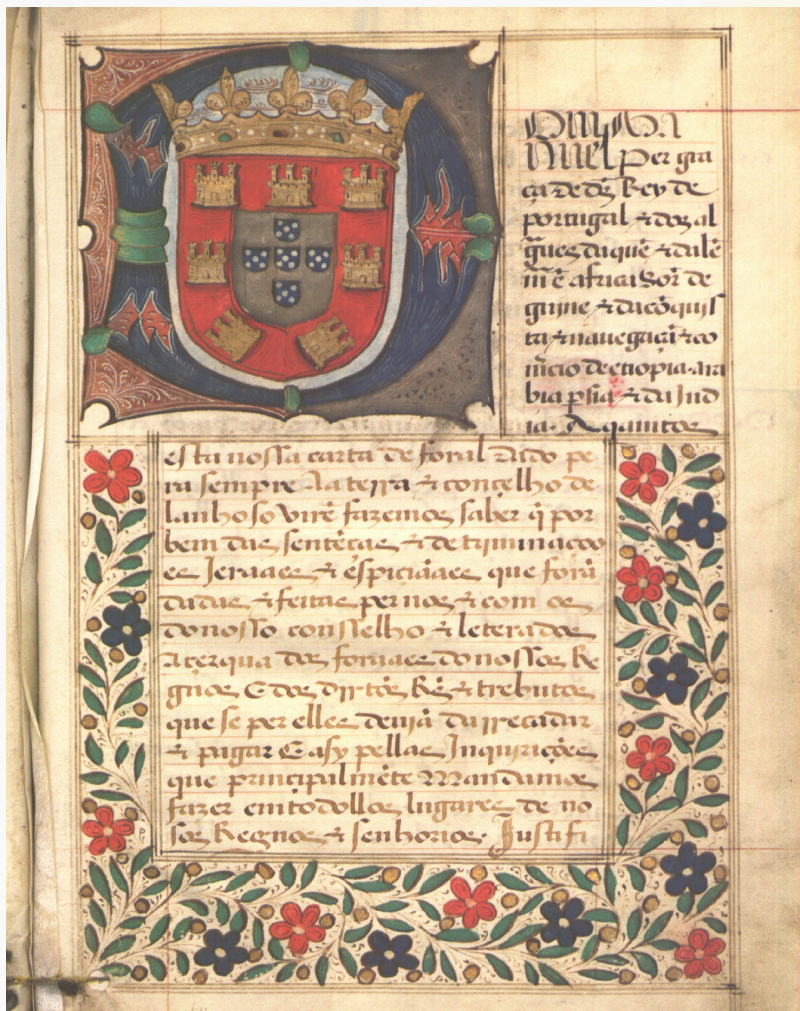 DOM MA
NUEL Per gra
ça de ds̃ Rey de
portugal & dos al
g̃ues daquẽ & dalẽ
m̃ ẽ africa Sor̃ de
guine & da cõquis
ta & nauegaçã & co
m̃cio de etiopia ara
bia p̃sia & da Ind
ia. A quantos
esta nossa carta de foral dado pe
ra sempre Aa terra & conçelho de
lanhoso virẽ fazemos saber q̃ por
bem das sentẽças & determinaçoo
es Jeraaes & espiciãaes que forã
dadas & feitas per nos & com os
do nosso consselho & leterados
Açerqua dos foraaes do nossos Re
gnos E dos dir̃tos R̃s & trebutos
que se per elles deuiã darrecadar
& pagar E asy pellas Inquiriçõès
que principalmẽte Mandamos
fazer em todollos lugares de no
sos Regnos & senhorios. Justifi